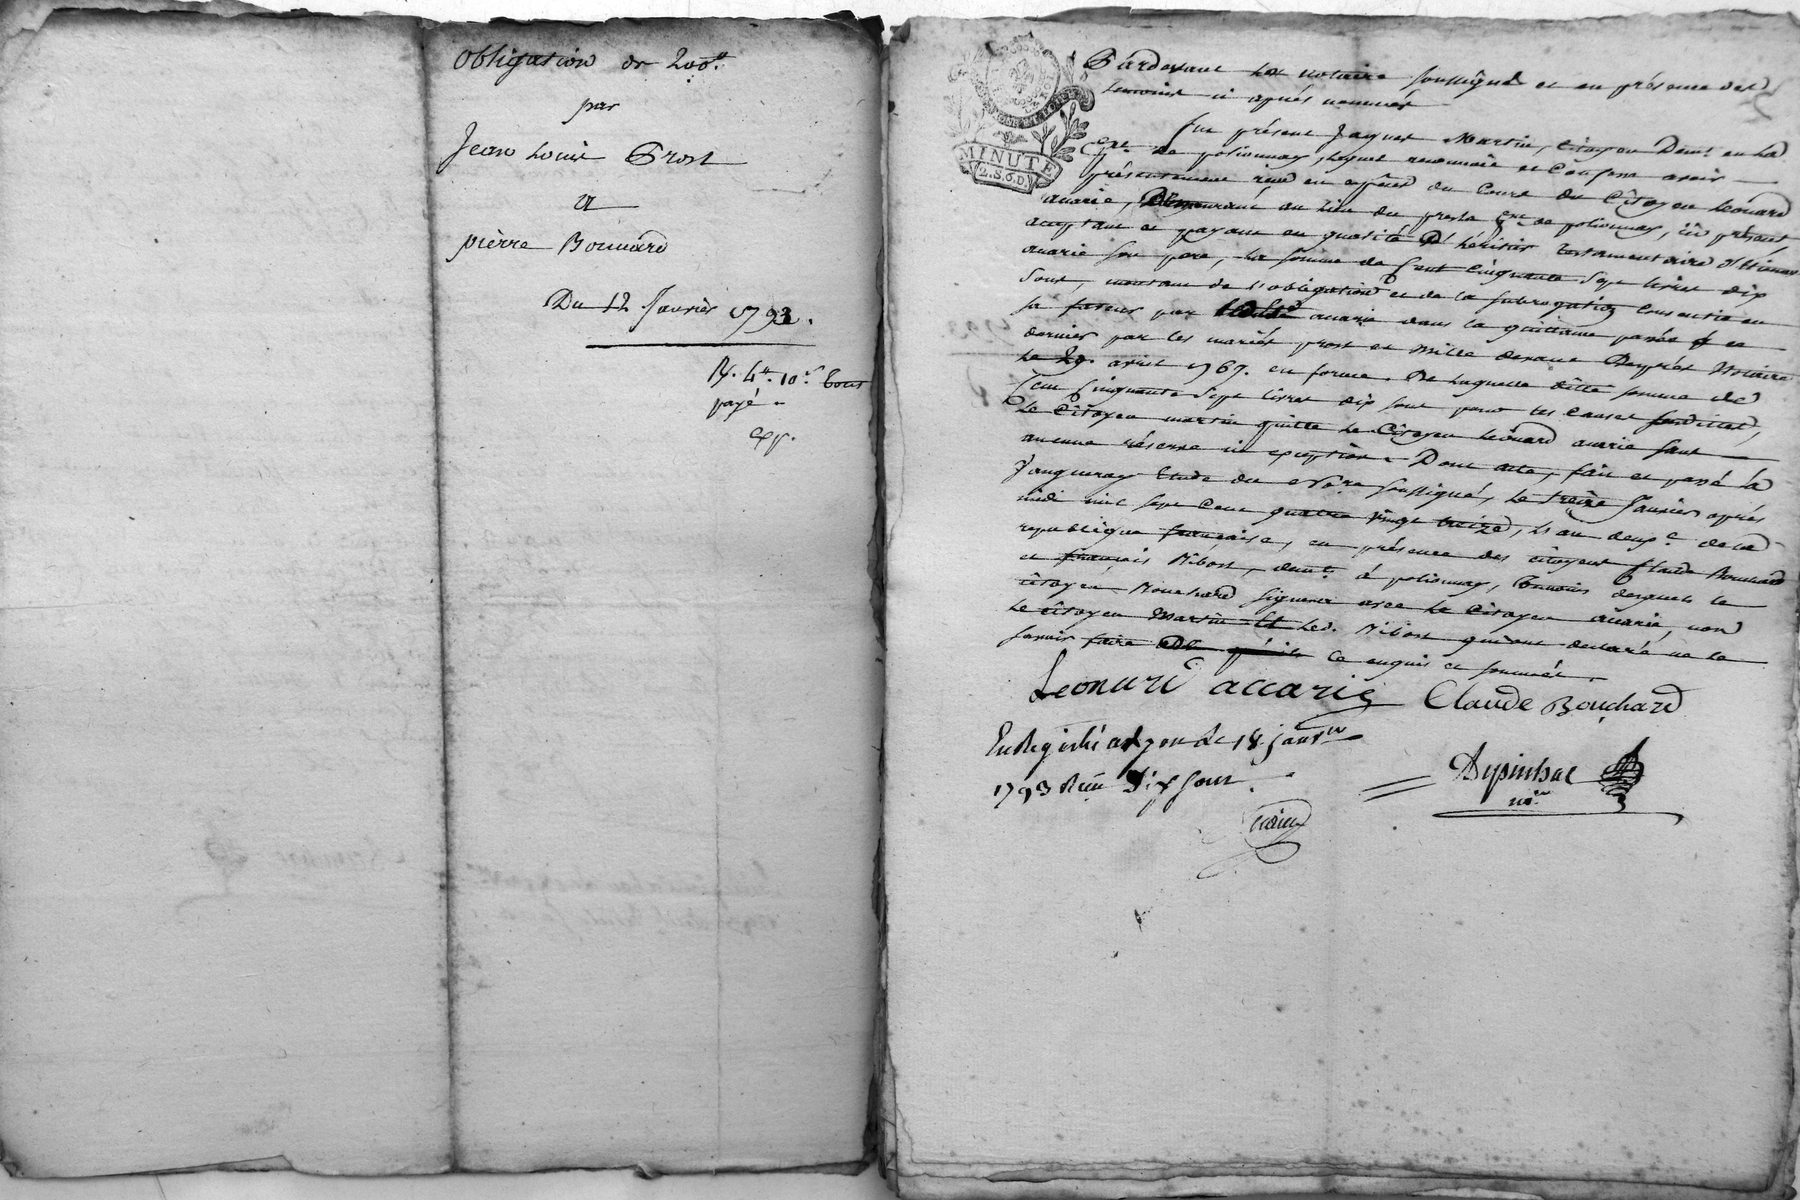 Obligation de 200lt
par
Jean Louis Prost
a
pierre Bouvard
Du 12 Janvier 1793.
R. 4lt. 10s. tout
payé
exp.
MINUTE
2.S.6.D
Pardevant le notaire soussigné et en présence des
temoins ci après nommés
fut présent Jaques Martin, Citoyen Demt en la
de polionnay, lequel reconnoit et Confesse avoir
présentement reçu en espèces du Cours du Citoyen Léonard
acarie, Demeurant au lieu du de polionnay, ici présent
acceptant et payant en qualité D'héritier testamentaire d'
acarie son pere, la somme de Cent Cinquante Sept livres dix
sous, montant de l'obligation et de la subrogation Consentie en
sa faveur par acarie dans la quittance passée
dernier par les mariés prost et Mille devant Notaire
le 29. avril 1767. en forme. De laquelle ditte somme de
Cent Cinquante Sept livres dix sous pour les Causes susdittes,
Le Citoyen martin quitte le Citoyen Léonard acarie sans
aucune réserve ni exception. Dont acte, fait et passé à
étude du nore soussigné, le treize Janvier après
midi mil sept Cent quatre vingt treize, l'an deuxe de la
republique française, en présence des citoyens Claude Bouchard
et françois Ribost, demts à polionnay, temoins desquels le
citoyen Bouchard signera avec le Citoyen acarie, non
le citoyen Martin et led. Ribost qui ont declaré ne le
savoir faire de ce enquis et sommés.
Leonard accarie Claude Bouchard
Enregistré a Lyon le 18 janvier
1793 Reçu Dix Sous
nore